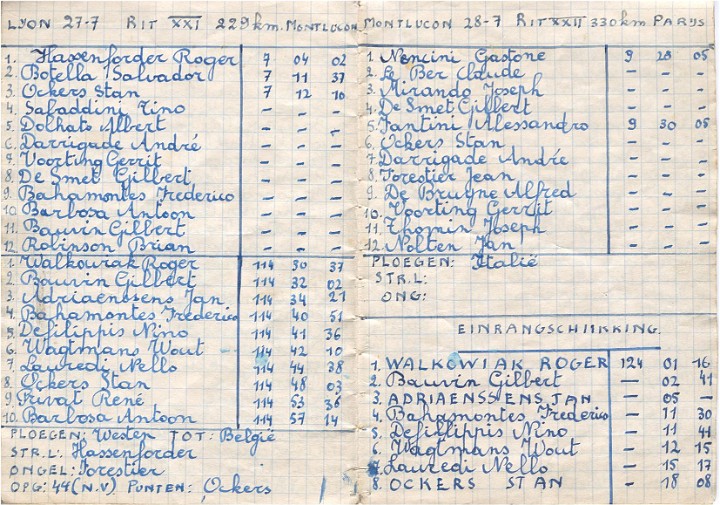 LYON 27-7 RIT XXI 229 km. MONTLUCON
1. Hassenforder Roger 7 04 02
2. Botella Salvador 7 11 37
3. Ockers Stan 7 12 10
4. Sabaddini Tino - - -
5. Dolhats Albert - - -
6. Darrigade André - - -
7. Voorting Gerrit - - -
8. De Smet Gilbert - - -
9. Bahamontes Frederico - - -
10. Barbosa Antoon - - -
11. Bauvin Gilbert - - -
12. Robinson Brian - - -
1. Walkowiak Roger 114 30 37
2. Bauvin Gilbert 114 32 02
3. Adriaenssens Jan 114 34 21
4. Bahamontes Frederico 114 40 51
5. Defilippis Nino 114 41 36
6. Wagtmans Wout 114 42 10
7. Lauredi Nello 114 44 38
8. Ockers Stan 114 48 03
9. Privat René 114 53 36
10. Barbosa Antoon 114 57 14
PLOEGEN: Westen TOT: België
STR.L: Hassenforder
ONGEL: Forestier
OPG: 44 (N.V) PUNTEN: Ockers
MONTLUCON 28-7 RIT XXII 330 km PARYS
1. Nencini Gastone 9 28 05
2. Le Ber Claude - - -
3. Mirando Joseph - - -
4. De Smet Gilbert - - -
5. Fantini Alessandro 9 30 05
6. Ockers Stan - - -
7. Darrigade André - - -
8. Forestier Jean - - -
9. De Bruyne Alfred - - -
10. Voorting Gerrit - - -
11. Thomin Joseph - - -
12. Nolten Jan - - -
PLOEGEN: Italië
STR.L:
ONG:
EINRANGSCHIKKING.
1. WALKOWIAK ROGER 124 01 16
2. Bauvin Gilbert - 02 41
3. ADRIAENSSENS JAN - 05 -
4. Bahamontes Frederico - 11 30
5. Defillippis Nino - 11 41
6. Wagtmans Wout - 12 15
7. Lauredi Nello - 15 17
8. OCKERS STAN - 18 08